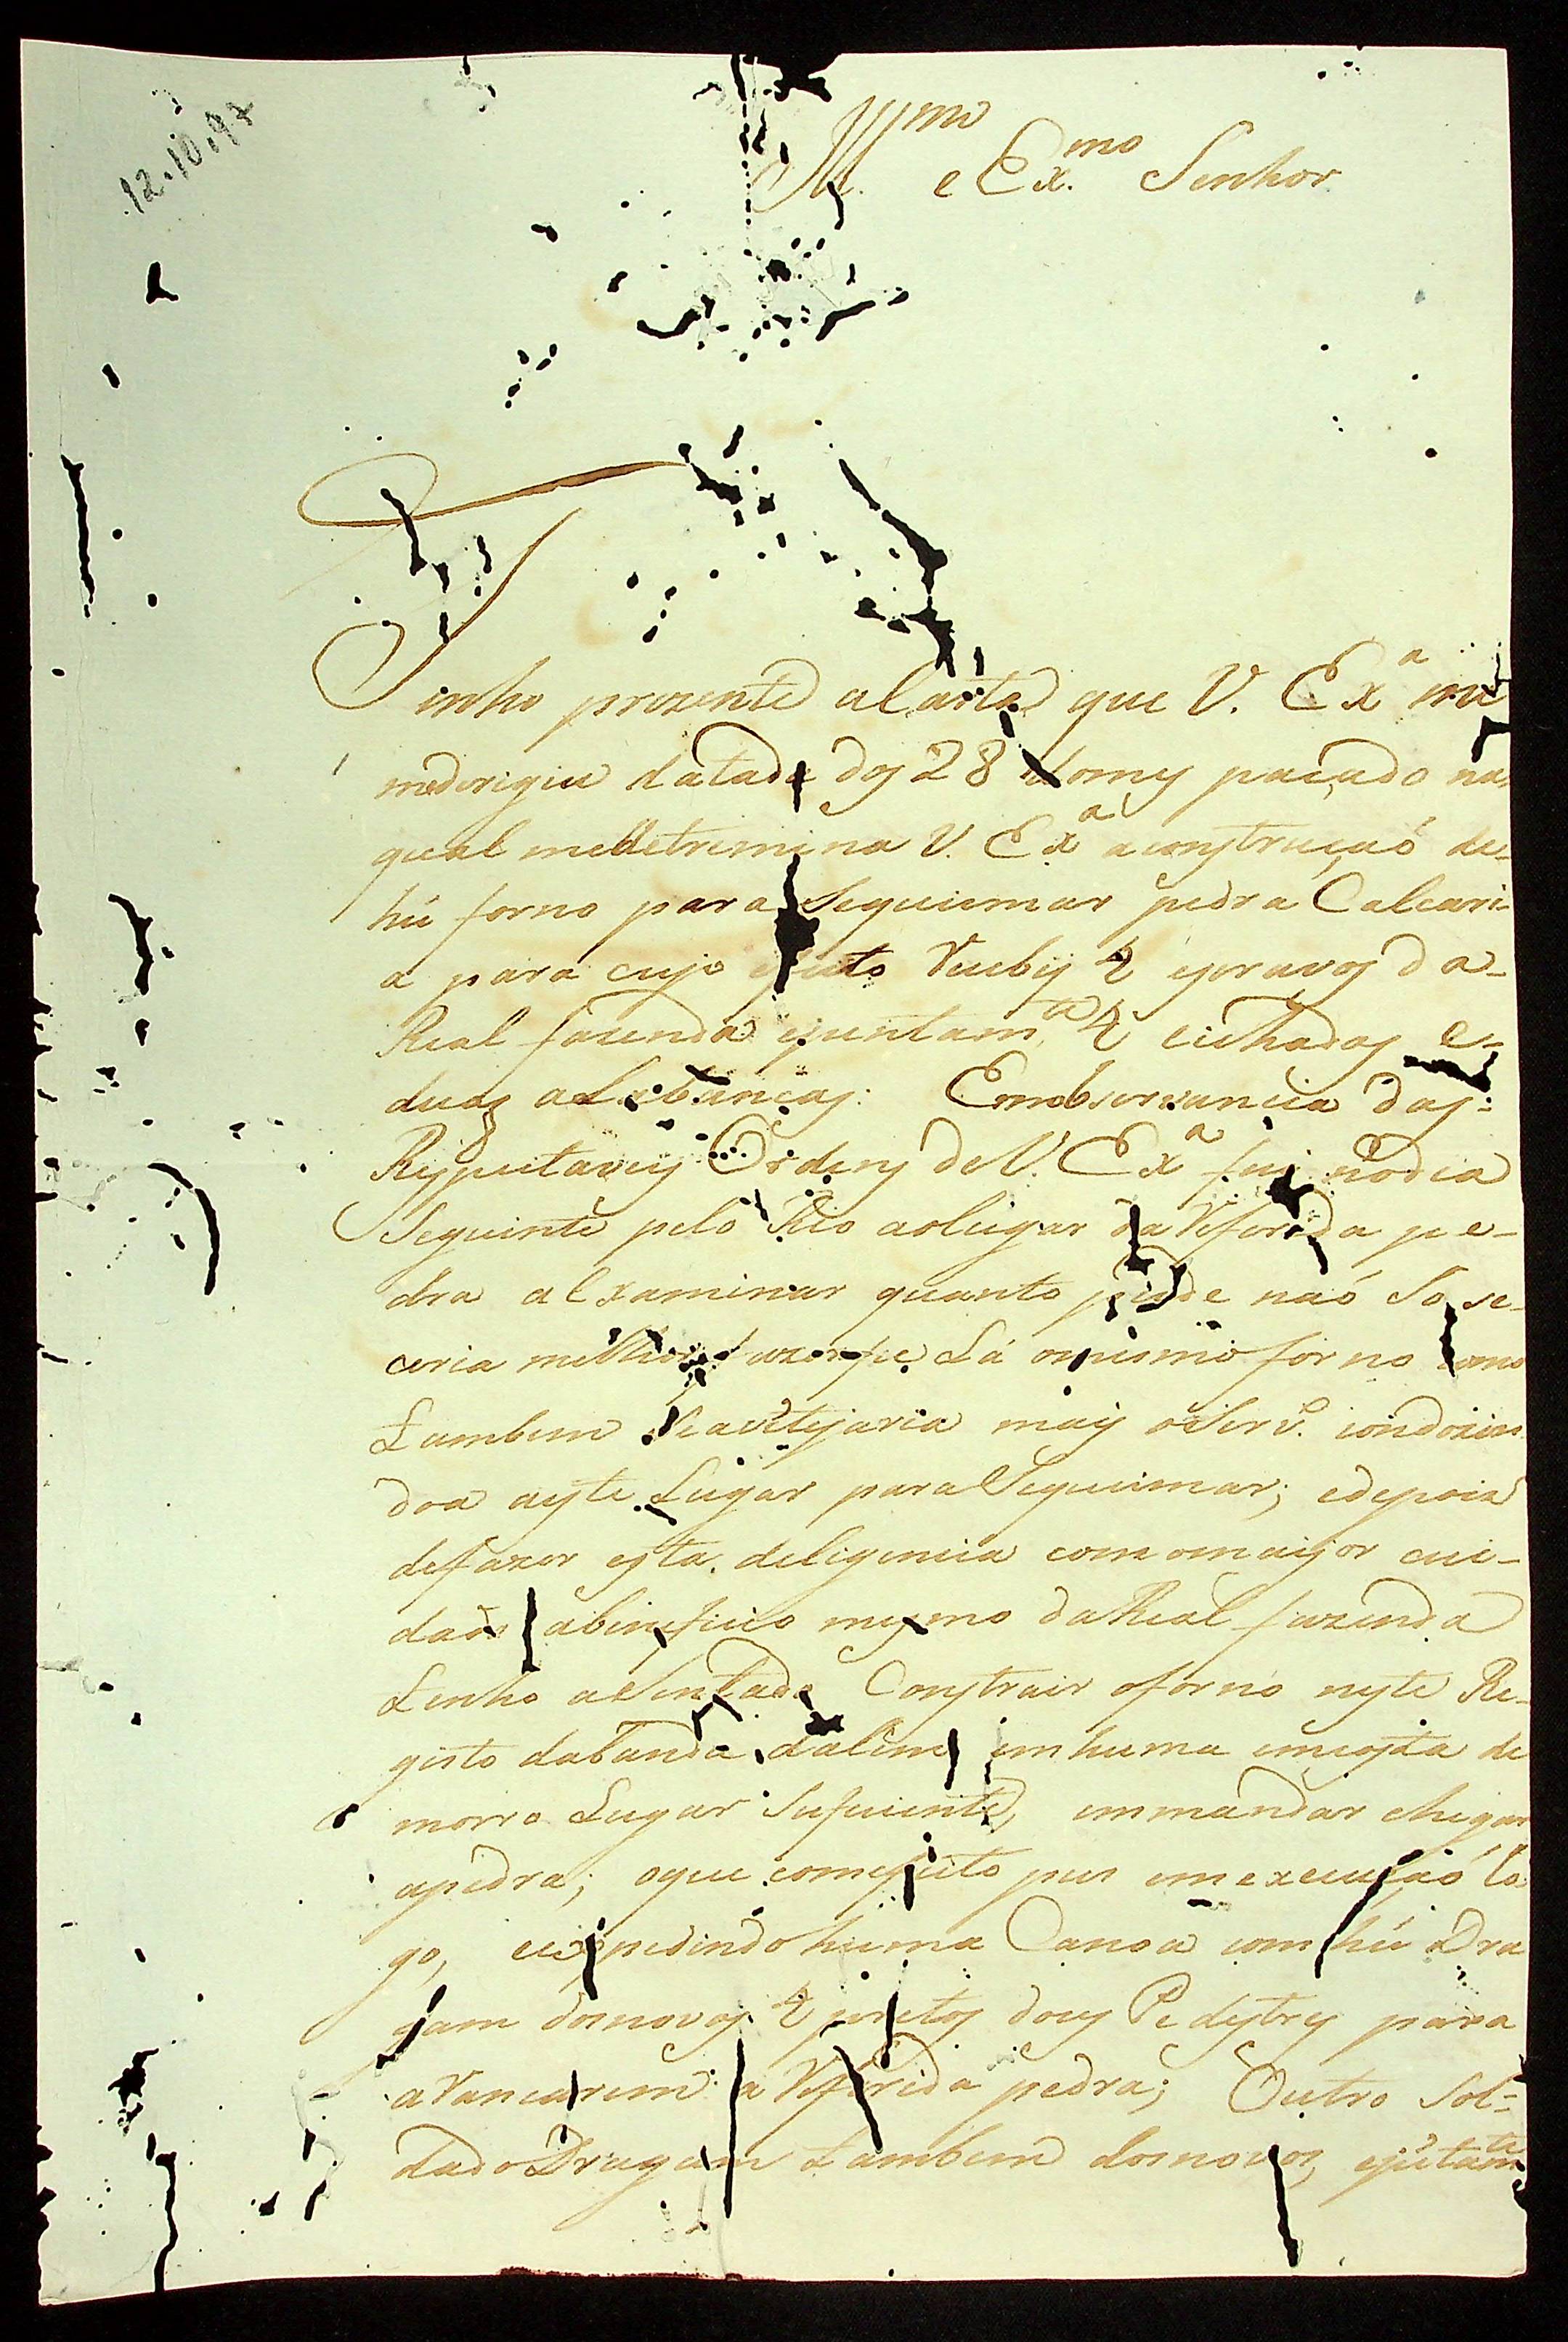 12.10.97
Ill.mo e Ex.mo Senhor
Tenho prezente aCarta que V. Ex.a me
medirigiu datada dos 28 domes paçado na
qual medetremina V. Ex.a aconstruçaõ de-
hũ forno para sequeimar pedra Calcari-
a para cujo efeito Recebi 4 escravos da-
Real fazenda ejuntam.te 4 Machados e-
duas alabancas: Emobservancia das-
Respeitaveis Ordens deV. Ex.a fui nodia
Seguinte pelo Rio aolugar da Referida pe-
dra aExaminar quanto pude naõ So se-
ceria milhor fazerse Lá omesmo forno como
tambem Seavetejaria mais oServ.o condozin
doa aeste Lugar paraSequeimar; edepois
defazer esta deligencia com omaijor cui-
dado abinificio mesmo daReal fazenda
tenho aSentado Construir oforno neste Re-
gisto dabanda dalem emhuma emcosta de
morro Lugar Suficiente, emmandar chegar
apedra; oque comefeito pus emexecuçaõ lo
go, expedindo huma Canoa com hũ Dra
gam dosnovos 4 pretos dous Pedestres para
aRancarem a Referida pedra; Outro Sol-
dado Dragam tambem dosnovos, ejũtam.te